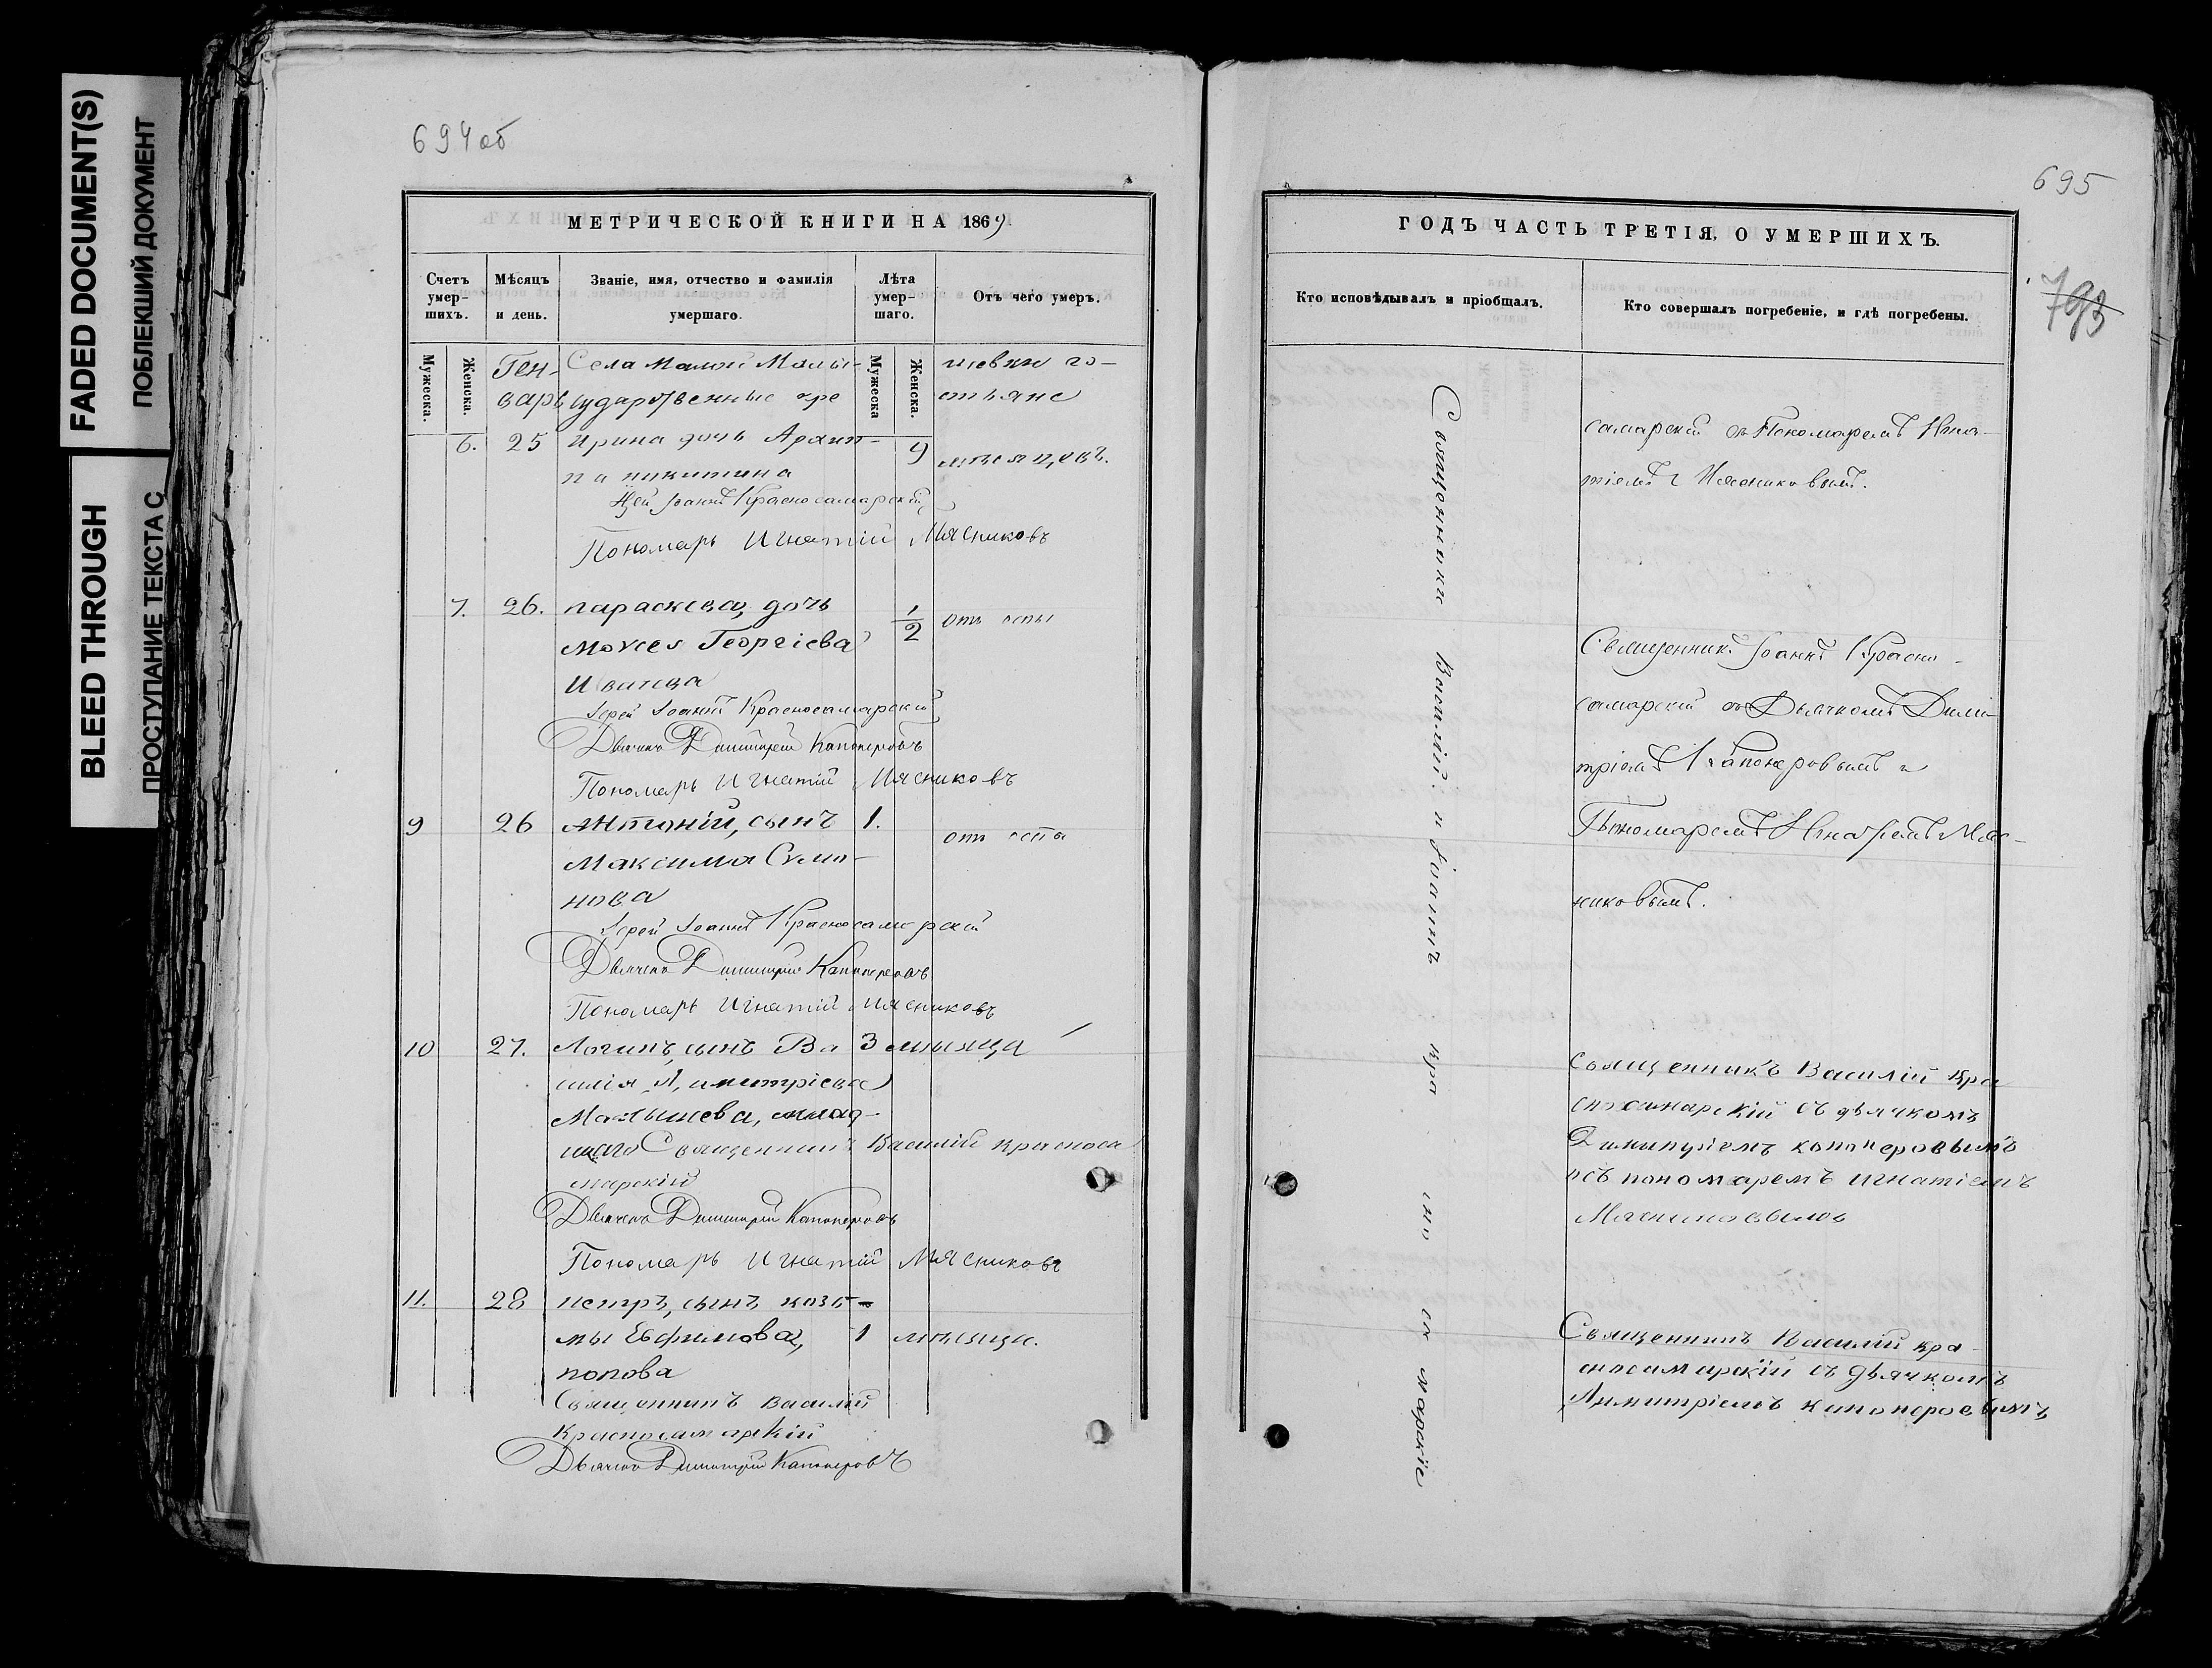 FADED DOCUMENT(S)
ПОБЛЕКШИЙ ДОКУМЕНТ
BLEED THROUGH
ПРОСТУПАНИЕ ТЕКСТА С
694об
МЕТРИЧЕСКОЙ КНИГИ НА 1869.
Счетъ умер-шихъ.
Мѣсяцъ и день.
Званіе, имя, отчество и фамилія умершаго.
Лѣта умер-шаго.
Отъ чего умеръ.
Мужеска.
Женска.
Мужеска
Женска.
Ген- Села Малой Малы- шевки го-
варь сударственные кре стьяне
6. 25 Ирина дочь Архип- 9 мѣсяцовъ.
па никитина
Іерей Іоаннъ Красносамарскій
Пономарь Игнатій Мясниковъ
7. 26. параскева, дочь 1/2 отъ оспы
Моисея Георгіева
Іерей Іоаннъ Красносамарскій
Дьячекъ Димитрій Капонеровъ
Пономарь Игнатій Мясниковъ
9 26 Антоній, сынъ 1. отъ оспы
Максима Симо-
нова
Іерей Іоаннъ Красносамарскій
Дьячекъ Димитрій Капонеровъ
Пономарь Игнатій Мясниковъ
10 27. Логинъ, сынъ Ва 3 мѣсяца
силія Димитріева
Малышева, млад-
шаго Священникъ Василій Красноса
марскій
Дьячекъ Димитрій Капонеровъ
Пономарь Игнатій Мясниковъ
11. 28 петръ, сынъ козь-
мы Евфимова, 1 мѣсяца.
попова
Священникъ Василій
Красносамарскій
Дьячекъ Димитрій Капонеровъ
695
793
ГОДЪ ЧАСТЬ ТРЕТІЯ, О УМЕРШИХЪ.
Кто исповѣдывалъ и пріобщалъ.
Кто совершалъ погребеніе, и гдѣ погребены.
Священники Василій и Іоаннъ кра сно са марскіе
самарскій съ Пономаремъ Игна-
тіемъ Мясниковымъ.
Священникъ Іоаннъ Красно-
самарскій съ Дьячкомъ Дими-
тріемъ Капонеровымъ и
Пономаремъ Игнатіемъ Мяс-
никовымъ.
Священникъ Василій Кра
сносамарскій съ дьячкомъ
Димитріемъ капонеровымъ
и съ пономаремъ игнатіемъ
Мясниковымъ
Священникъ Василій кра-
сносамарскій съ дьячкомъ
Димитріемъ капонеровымъ